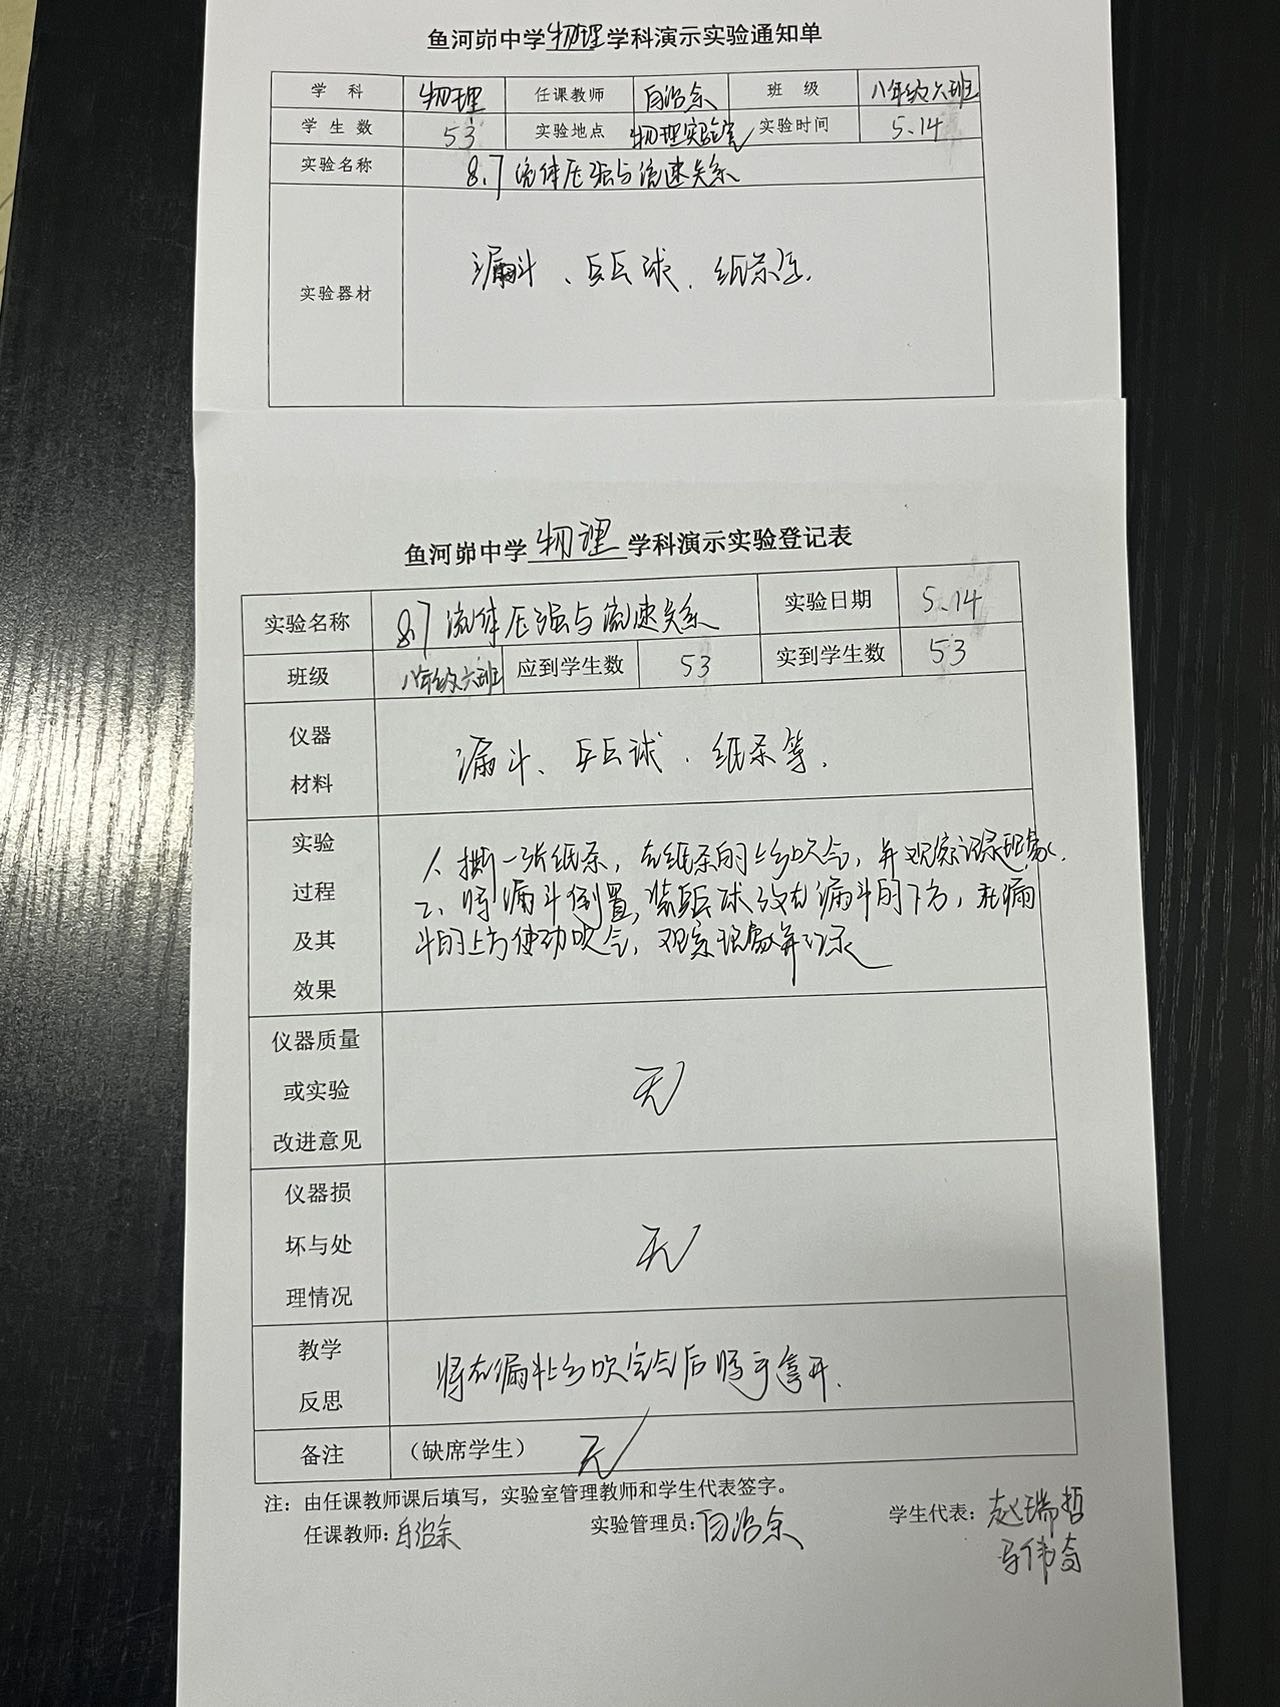 鱼河峁中学物理学科演示实验通知单
学 科 物理 任课教师 白治余 班 级 八年级六班
学 生 数 53 实验地点 物理实验室 实验时间 5.14
实验名称 8.7 流体压强与流速关系
实验器材 漏斗、乒乓球、纸条等.
鱼河峁中学物理学科演示实验登记表
实验名称 8.7 流体压强与流速关系 实验日期 5.14
班级 八年级六班 应到学生数 53 实到学生数 53
仪器
材料
漏斗、乒乓球、纸条等.
实验
过程
及其
效果
1、撕一张纸条,在纸条的上方吹气,并观察记录现象.
2、将漏斗倒置,将乒乓球放在漏斗的下方,在漏
斗的上方使劲吹气,观察现象并记录
仪器质量
或实验
改进意见
无
仪器损
坏与处
理情况
无
教学
反思
将在漏斗上方吹气后将手拿开.
备注 (缺席学生) 无
注: 由任课教师课后填写, 实验室管理教师和学生代表签字。
任课教师: 白治余 实验管理员: 白治余 学生代表: 赵瑞哲
马伟奇